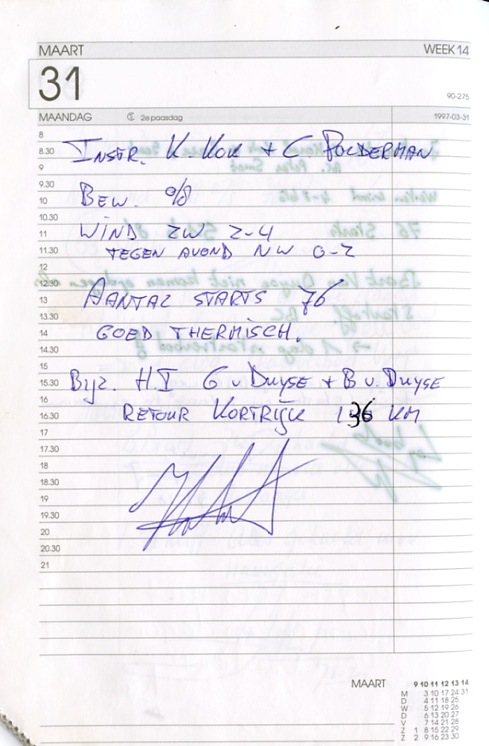 MAART WEEK 14
31
90-275
MAANDAG 2e paasdag 1997-03-31
8
8.30 INSTR. K. KOK + C POLDERMAN
9
9.30
10 BEW. 0/8
10.30
11 WIND ZW 2-4
11.30 TEGEN AVOND NW 0-2
12
12.30
13 AANTAL STARTS 76
13.30
14 GOED THERMISCH.
14.30
15
15.30 Byz. H II G v DUYSE + B v. DUYSE
16
16.30 RETOUR KORTRIJK 136 KM
17
17.30
18
18.30
19
19.30
20
20.30
21
MAART 9 10 11 12 13 14
M 3 10 17 24 31
D 4 11 18 25
W 5 12 19 26
D 6 13 20 27
V 7 14 21 28
Z 1 8 15 22 29
Z 2 9 16 23 30